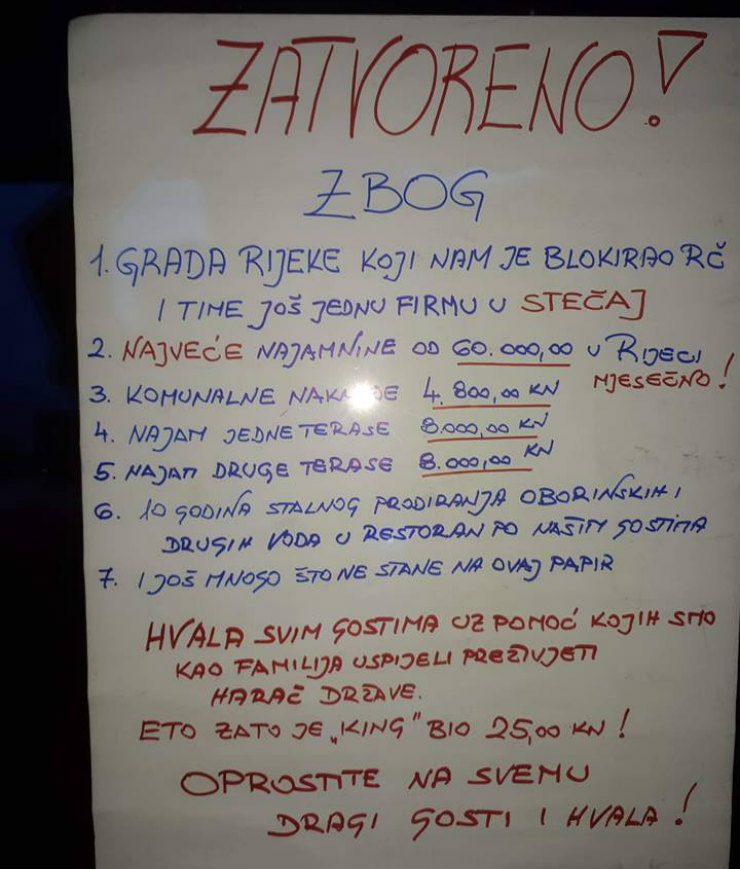 ZATVORENO!
ZBOG
1. GRADA RIJEKE KOJI NAM JE BLOKIRAO RČ
I TIME JOŠ JEDNU FIRMU U STEČAJ
2. NAJVEĆE NAJAMNINE OD 60.000,00 U RIJECI
MJESEČNO!
3. KOMUNALNE 4.800,00 KN
4. NAJAM JEDNE TERASE 8.000,00 KN
5. NAJAM DRUGE TERASE 8.000,00 KN
6. 10 GODINA STALNOG PRODIRANJA OBORINSKIH I
DRUGIH VODA U RESTORAN PO NAŠIM GOSTIMA
7. I JOŠ MNOGO ŠTO NE STANE NA OVAJ PAPIR
HVALA SVIM GOSTIMA UZ POMOĆ KOJIH SMO
KAO FAMILIJA USPIJELI PREŽIVJETI
HARAČ DRŽAVE.
ETO ZATO JE „KING" BIO 25,00 KN!
OPROSTITE NA SVEMU
DRAGI GOSTI I HVALA!